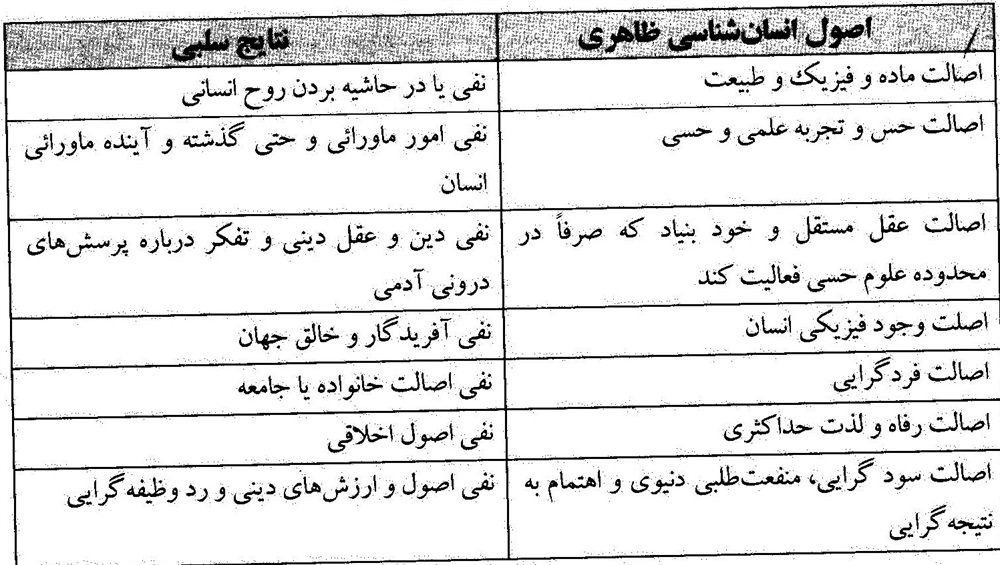 اصول انسان‌شناسی ظاهری
نتایج سلبی
اصالت ماده و فیزیک و طبیعت
نفی یا در حاشیه بردن روح انسانی
اصالت حس و تجربه علمی و حسی
نفی امور ماورائی و حتی گذشته و آینده ماورائی
انسان
اصالت عقل مستقل و خود بنیاد که صرفاً در
محدوده علوم حسی فعالیت کند
نفی دین و عقل دینی و تفکر درباره پرسش‌های
درونی آدمی
اصلت وجود فیزیکی انسان
نفی آفریدگار و خالق جهان
اصالت فردگرایی
نفی اصالت خانواده یا جامعه
اصالت رفاه و لذت حداکثری
نفی اصول اخلاقی
اصالت سود گرایی، منفعت‌طلبی دنیوی و اهتمام به
نتیجه‌گرایی
نفی اصول و ارزش‌های دینی و رد وظیفه‌گرایی